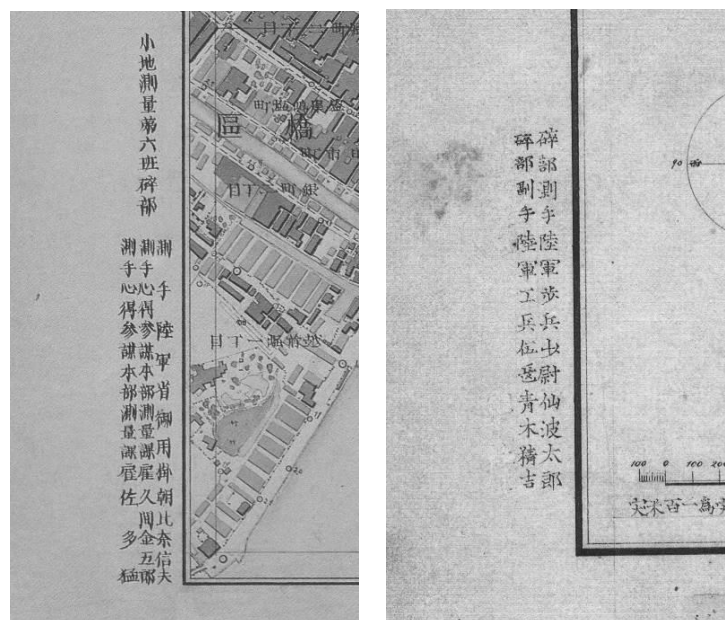 小地測量第六班碎部
測手陸軍省御用掛朝比奈信夫
測手心得參謀本部測量課雇久間金五郎
測手心得參謀本部測量課雇佐多猛
橋區
銀町一丁目
越前堀一丁目
碎部測手陸軍步兵少尉仙波太郎
碎部副手陸軍工兵伍長青木精吉
90
100 0 100 200